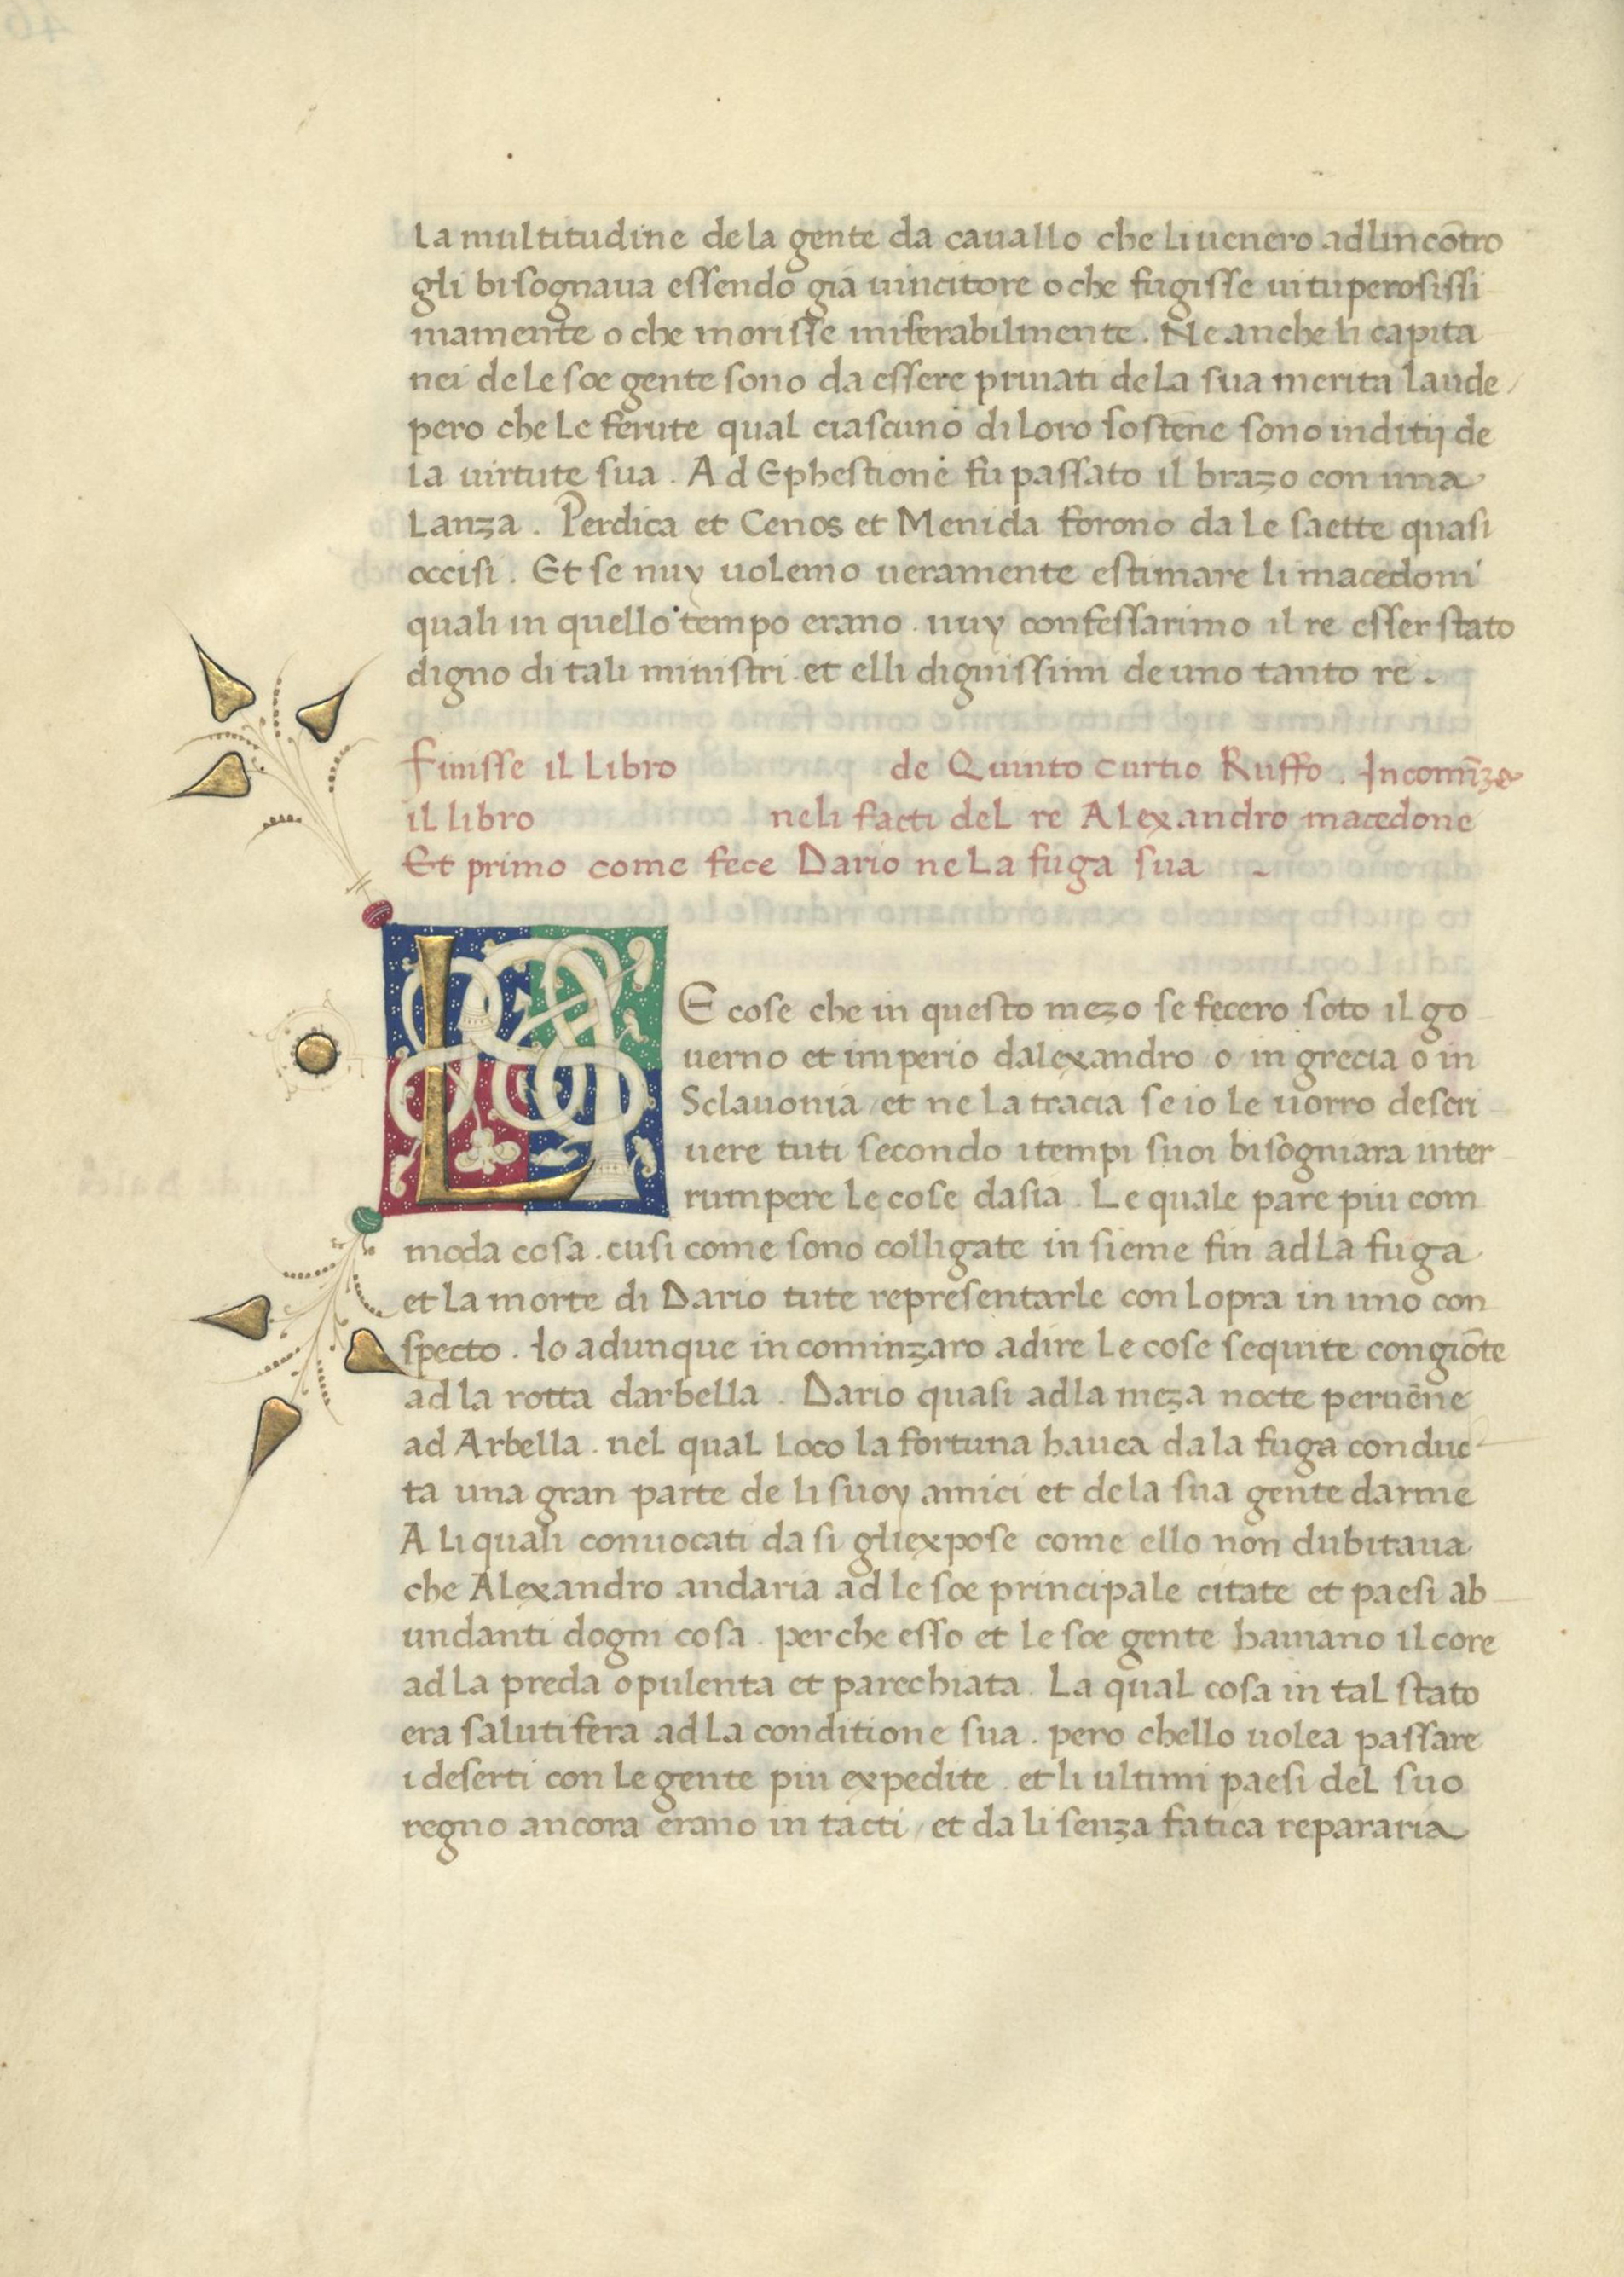 la multitudine de la gente da cauallo che li uenero ad lincōtro
gli bisognaua essendo gia uincitore o che fugisse uituperosissi
mamente o che morisse miserabilmente. Ne anche li capita
nei de le soe gente sono da essere priuati de la sua merita laude/
pero che le ferute qual ciascuno di loro sostene sono inditij de
la uirtute sua. Ad Ephestione fu passato il brazo con una
lanza. Perdica et Cenos et Menida forono da le saette quasi
occisi. Et se nuy uolemo ueramente estimare li macedoni
quali in quello tempo erano. nuy confessarimo il re esser stato
digno di tali ministri. et elli dignissimi de uno tanto re.
Finisse il libro de Quinto curtio Ruffo. Incomīza
il libro neli facti del re Alexandro macedone
Et primo come fece Dario ne la fuga sua.
LE cose che in questo mezo se fecero soto il go
uerno et imperio dalexandro / o / in grecia o in
Sclauonia / et ne la tracia se io le uorro descri
uere tuti secondo i tempi suoi bisogniara inter
rumpere le cose dasia. Le quale pare piu com
moda cosa. cusi come sono colligate insieme fin ad la fuga
et la morte di Dario tute representarle con lopra in uno con
specto. Io adunque incominzaro a dire le cose sequite congiōte
ad la rotta darbella. Dario quasi ad la meza nocte peruēne
ad Arbella. nel qual loco la fortuna hauea da la fuga conduc
ta una gran parte de li suoy amici et de la sua gente darme
A li quali conuocati da si gli expose come ello non dubitaua
che Alexandro andaria ad le soe principale citate et paesi ab
undanti dogni cosa. perche esso et le soe gente hauiano il core
ad la preda opulenta et parechiata. La qual cosa in tal stato
era salutifera ad la conditione sua. pero chello uolea passare
i deserti con le gente piu expedite. et li ultimi paesi del suo
regno ancora erano intacti / et da li senza fatica repararia